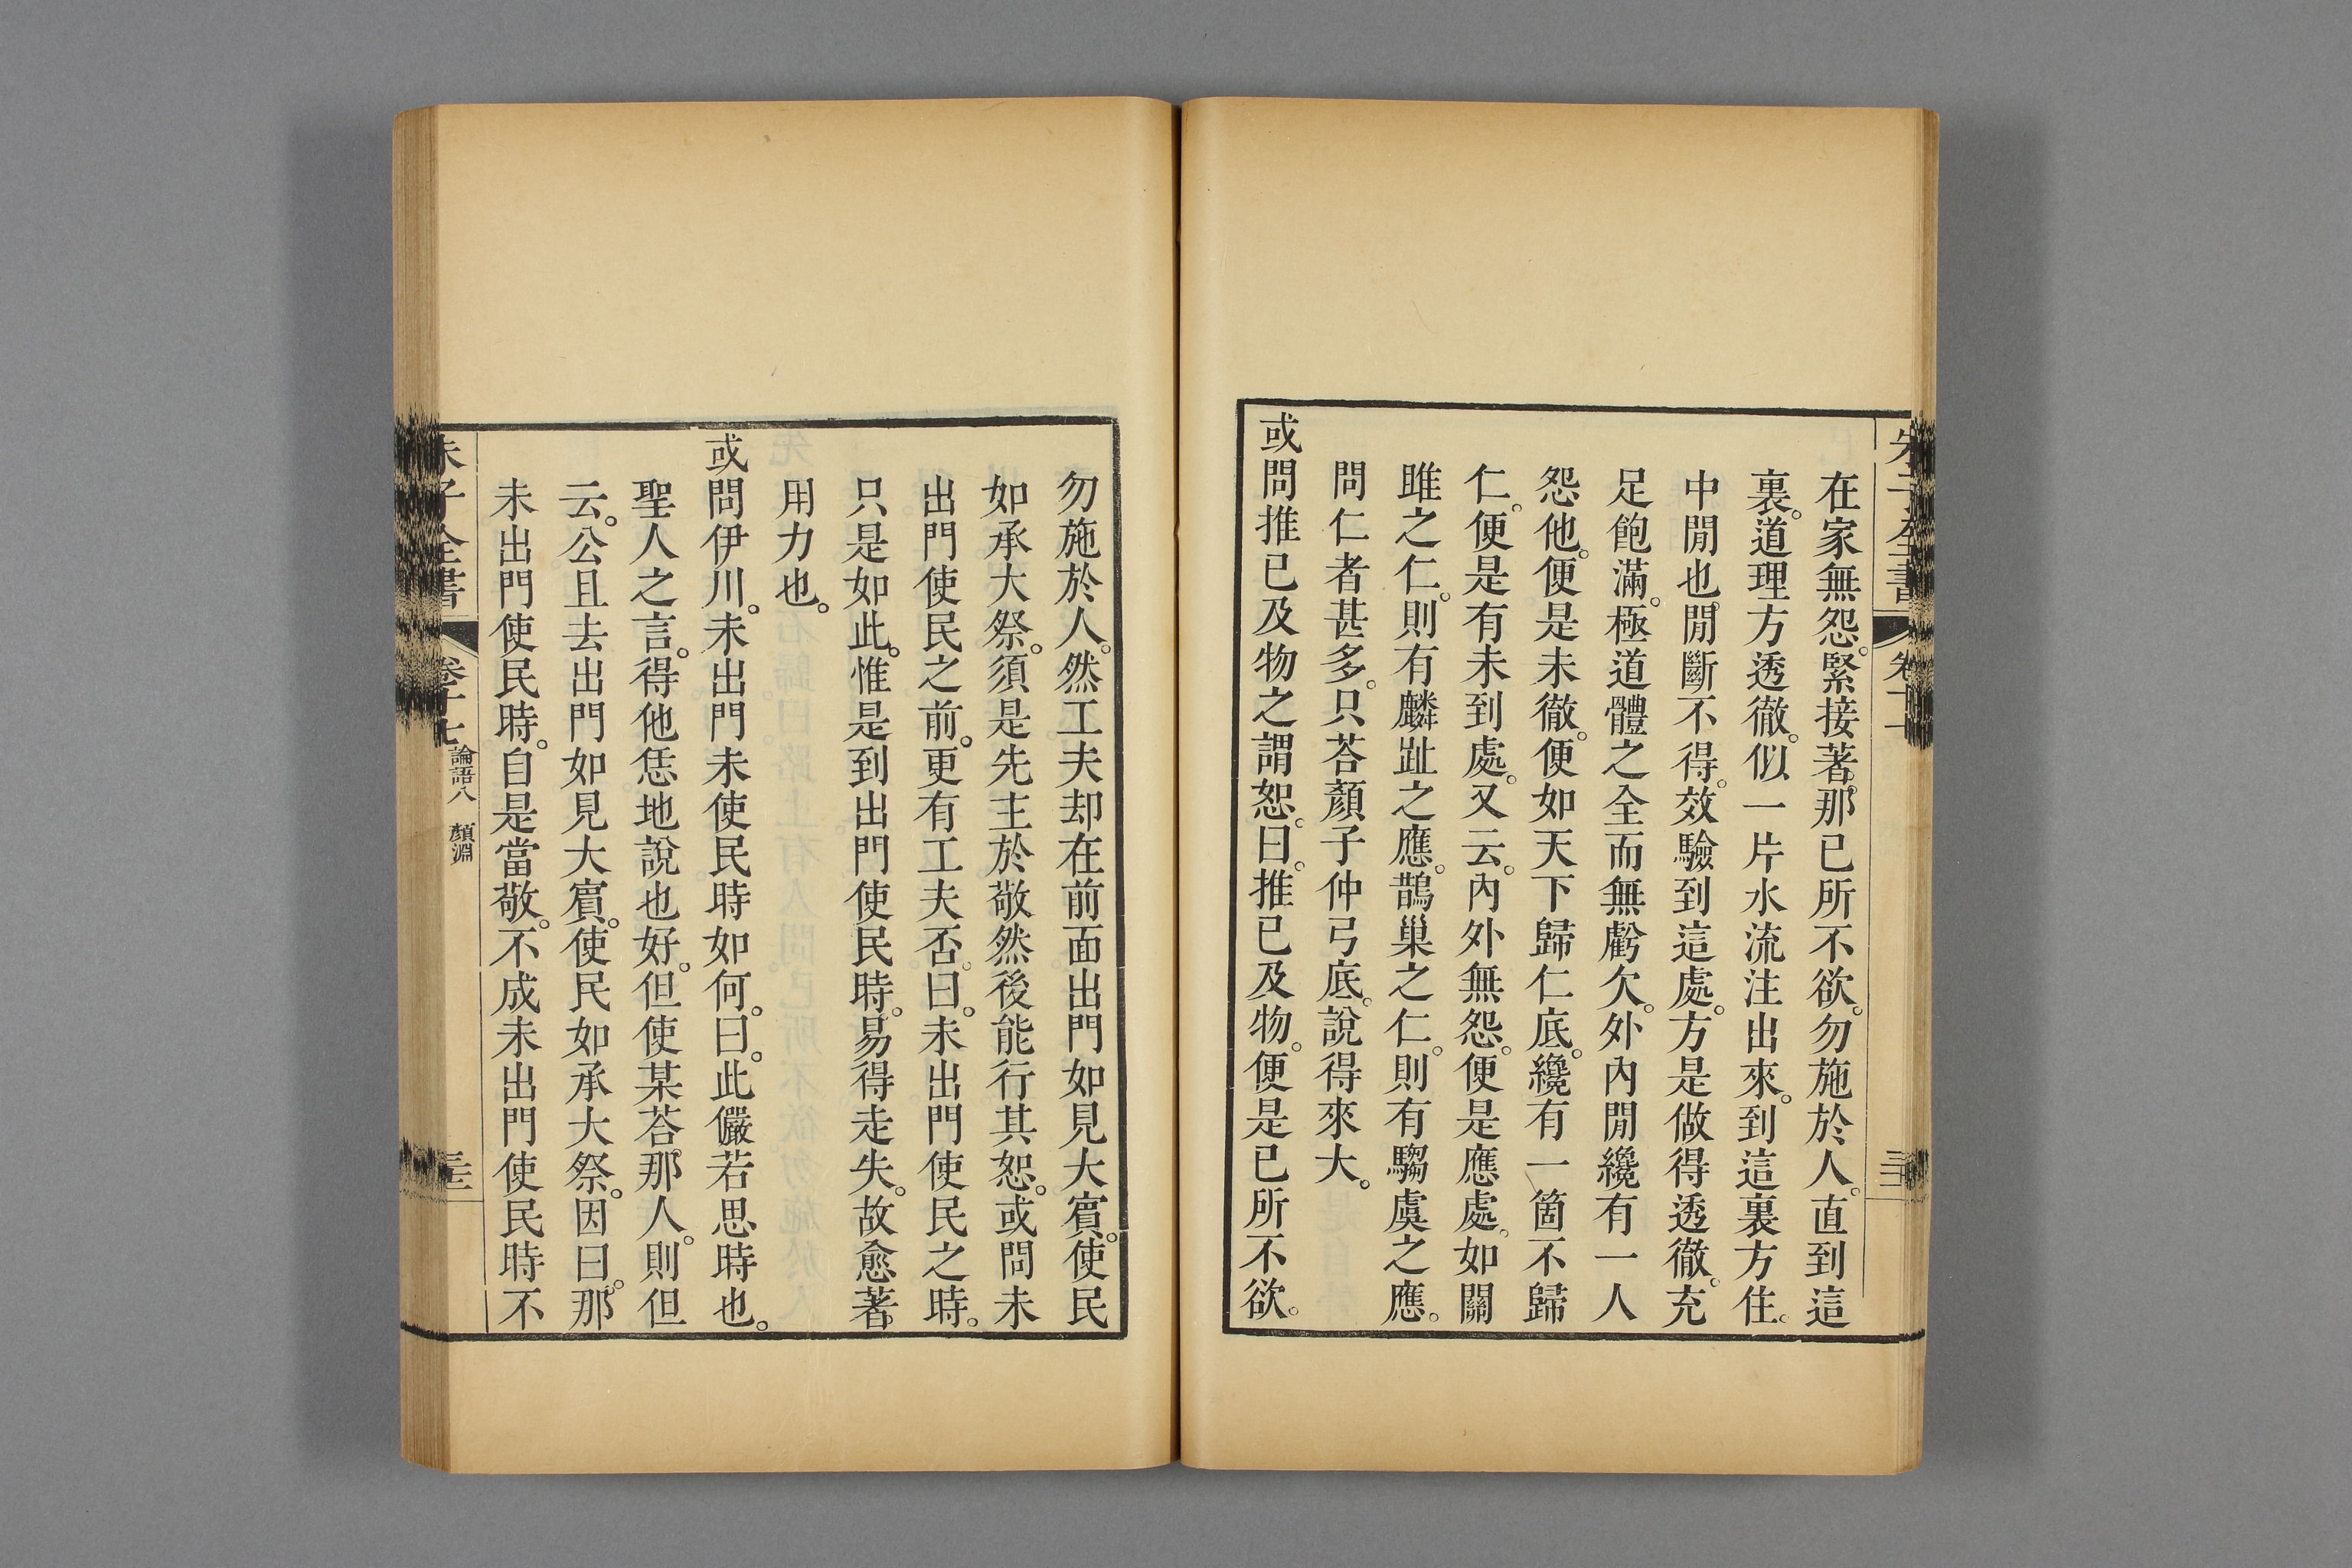 在家無怨。緊接著。那已所不欲。勿施於人。直到這
裏。道理方透徹。似一片水流注出來。到這裏方住。
中閒也。閒斷不得。效驗到這處。方是做得透徹。充
足飽滿。極道體之全而無虧欠。外內閒纔有一人
怨他。便是未徹。便如天下歸仁底。纔有一箇不歸
仁。便是有未到處。又云。內外無怨。便是應處。如關
雎之仁。則有麟趾之應。鵲巢之仁。則有騶虞之應。
問仁者甚多。只荅顏子仲弓底。說得來大。
或問推已及物之謂恕。曰。推已及物。便是已所不欲。
勿施於人。然工夫却在前面出門如見大賓。使民
如承大祭。須是先主於敬然後能行其恕。或問未
出門使民之前。更有工夫否。曰。未出門使民之時。
只是如此。惟是到出門使民時。易得走失。故愈著。
用力也。
或問伊川。未出門未使民時如何。曰。此儼若思時也。
聖人之言。得他恁地說也好。但使某荅那人。則但
云。公且去出門如見大賓。使民如承大祭。因曰。那
未出門使民時。自是當敬。不成未出門使民時不
朱子全書 卷十七 論語八 顏淵